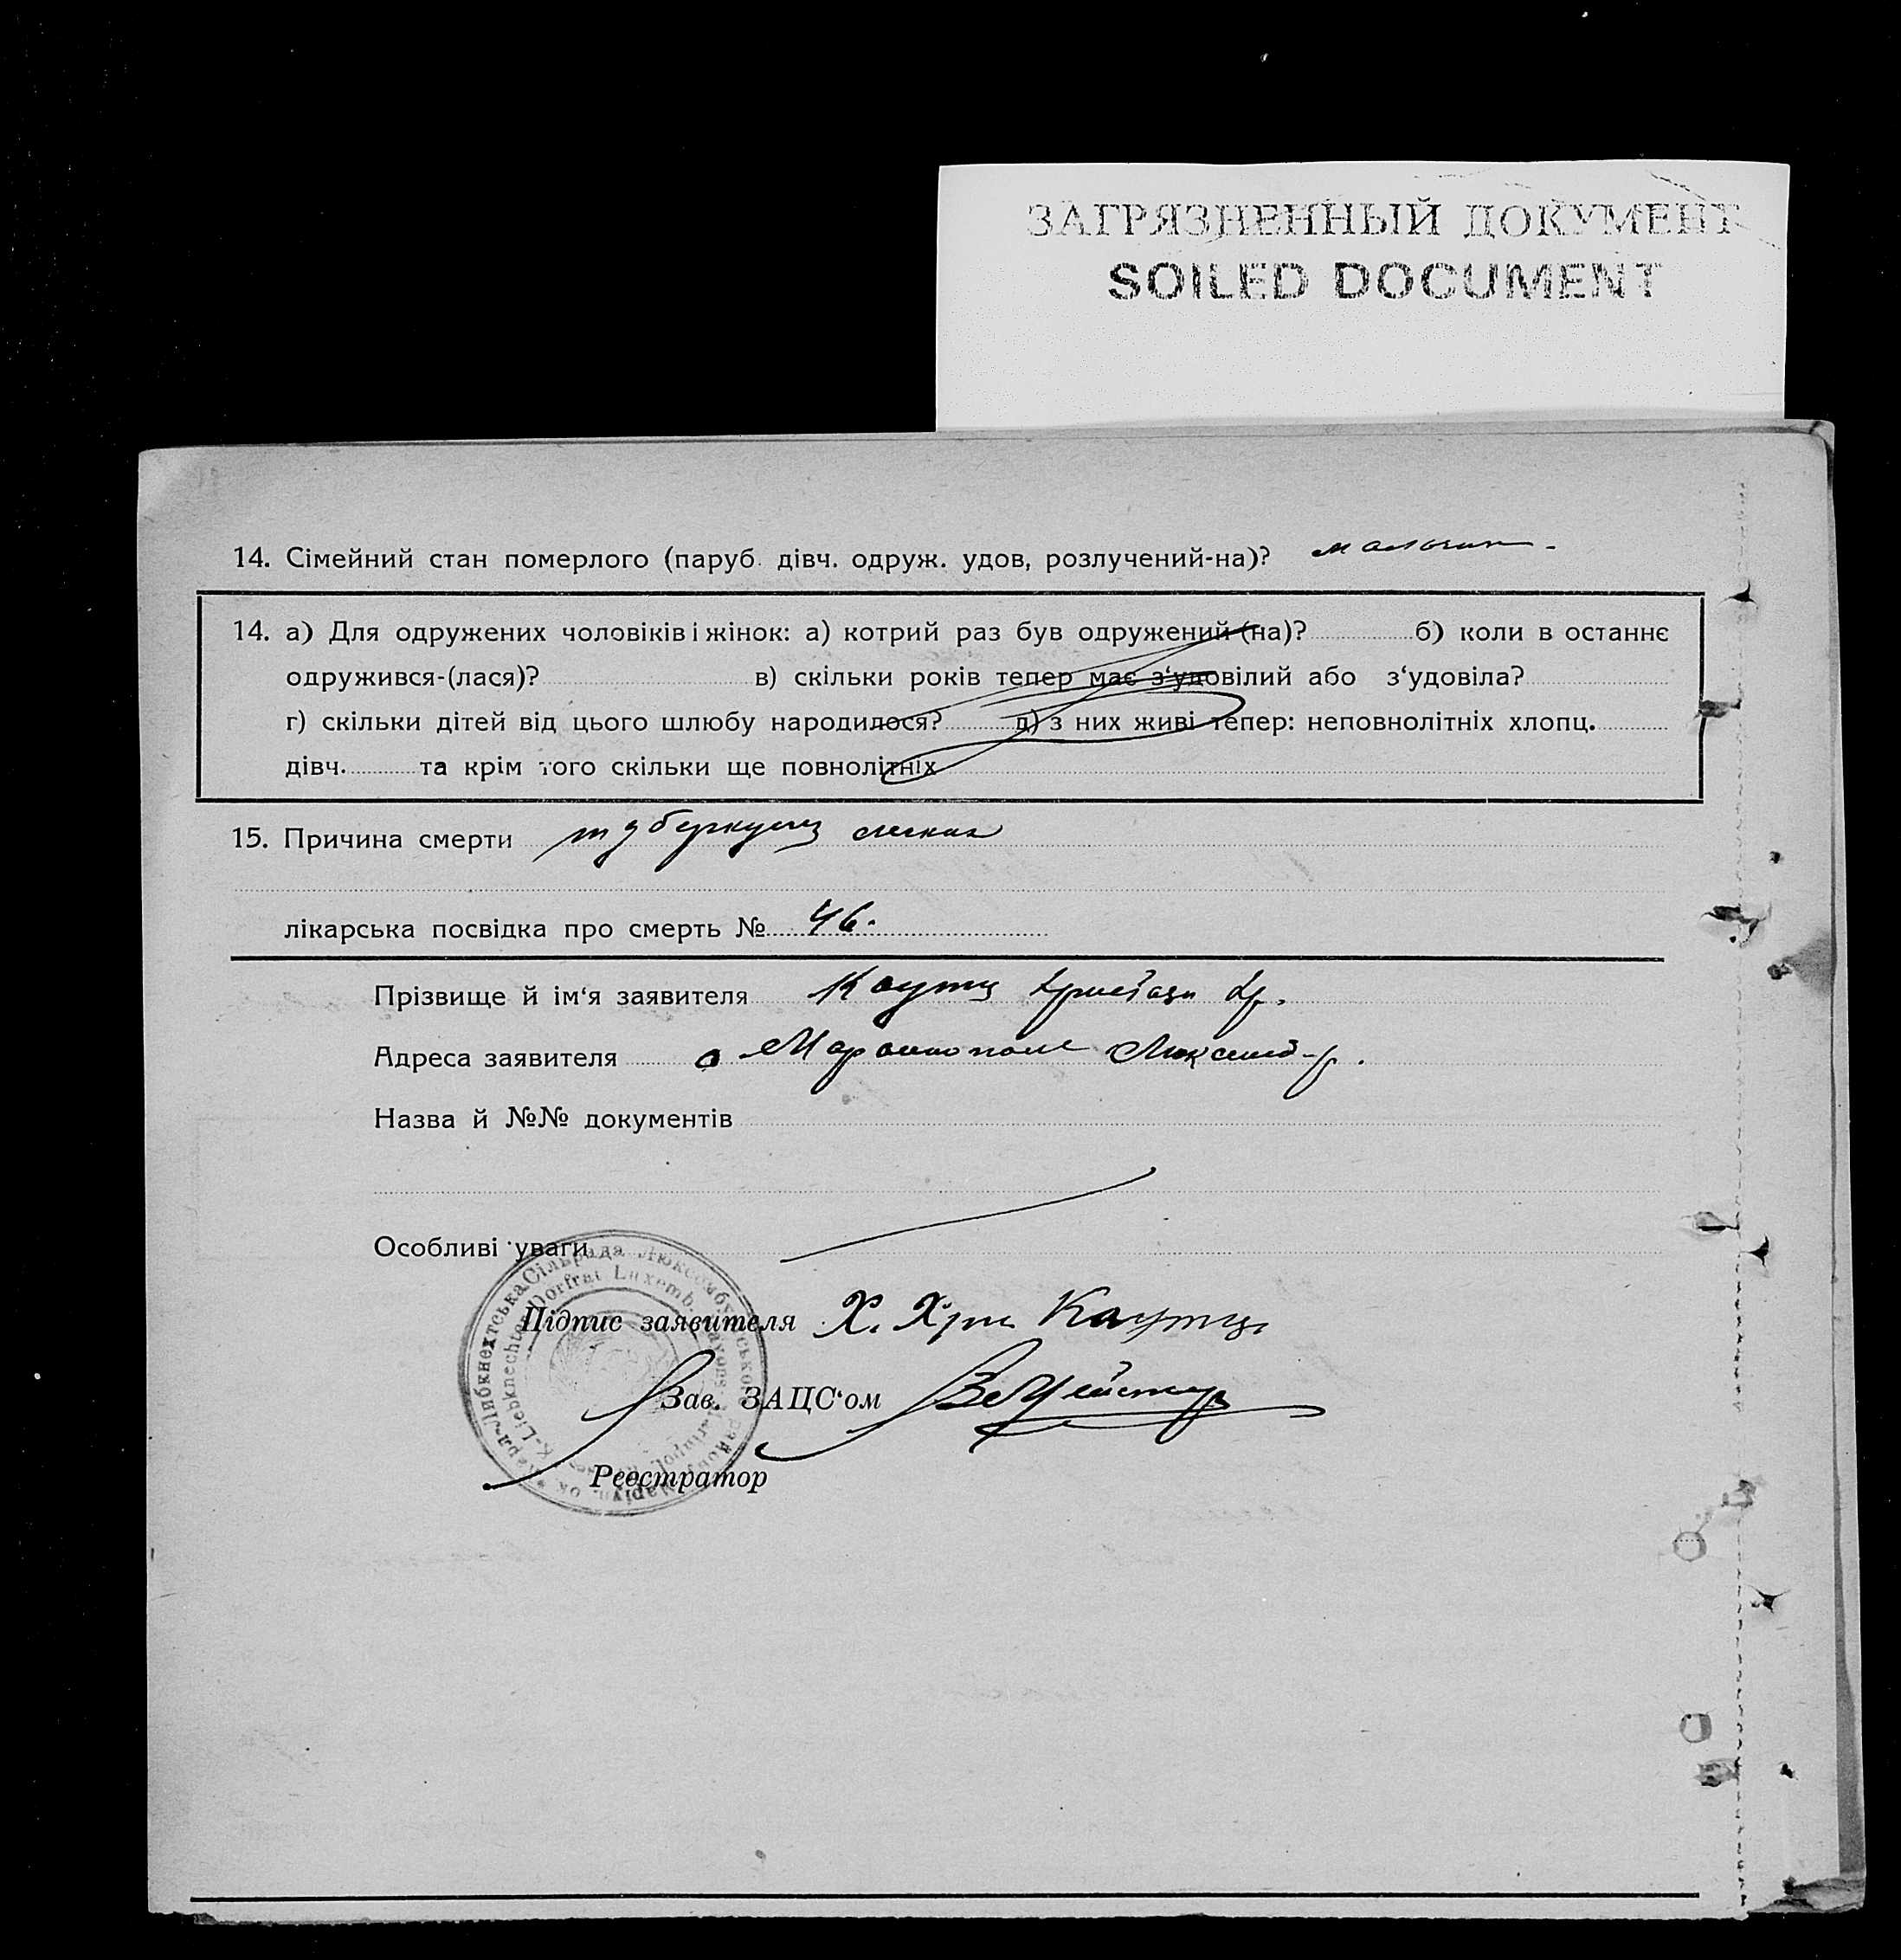 ЗАГРЯЗНЕННЫЙ ДОКУМЕНТ
SOILED DOCUMENT
14. Сімейний стан померлого (паруб. дівч. одруж. удов, розлучений-на)? мальчик.
14. а) Для одружених чоловіків і жінок: а) котрий раз був одружений (на)? б) коли в останнє
одружився-(лася)? в) скільки років тепер має з‘удовілий або з‘удовіла?
г) скільки дітей від цього шлюбу народилося? д) з них живі тепер: неповнолітніх хлопц.
дівч. та крім того скільки ще повнолітніх
15. Причина смерти туберкулез легких
лікарська посвідка про смерть № 46.
Прізвище й ім‘я заявителя Каутц Християн Хр.
Адреса заявителя Люксемб-р.
Назва й №№ документів
Особливі уваги
Підпис заявителя Х. Хри Каутц
Зав. ЗАЦС‘ом
Реєстратор
Карл-Либкнехтська Сільрада Люксембурського району Маріуп. ок
K-Liebknechter Dorfrat Luxemb. Rayons Mariupol